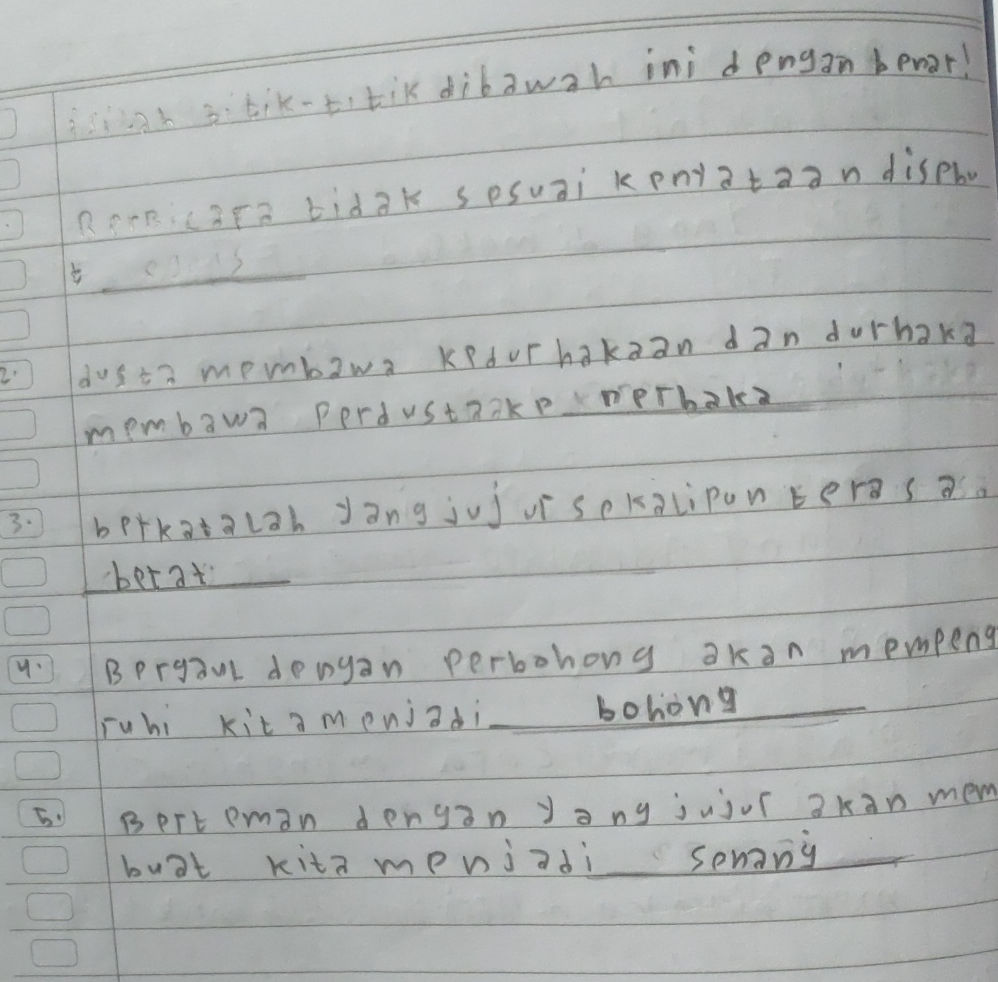 isilah titik-titik dibawah ini dengan benar!
Berbicara tidak sesuai kenyataan disebu
t
2. dusta membawa kedurhakaan dan durhaka
membawa Perdustaake nerbaka
3. berkatalah yang jujur sekalipun terasa
berat
4. Bergaul dengan Perbohong akan mempeng
ruhi kita menjadi bohong
5. Berteman dengan yang jujur akan mem
buat kita menjadi senang